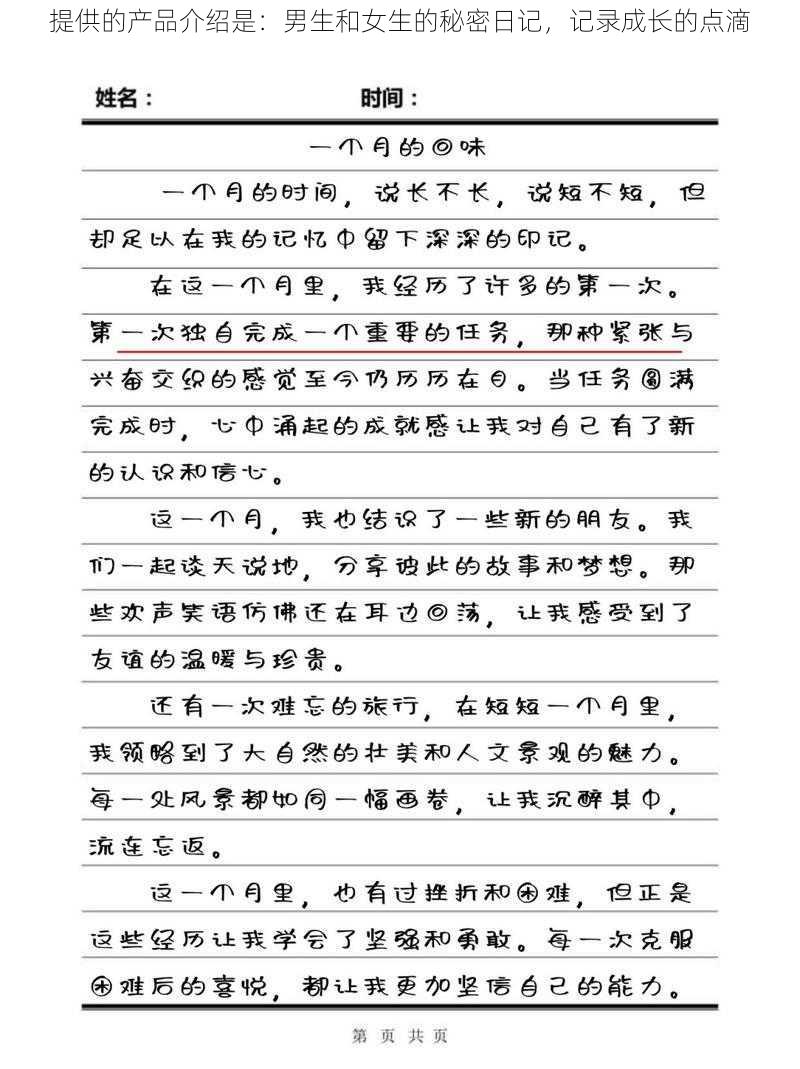 提供的产品介绍是：男生和女生的秘密日记，记录成长的点滴
姓名： 时间：
一个月的回味
一个月的时间，说长不长，说短不短，但
却足以在我的记忆中留下深深的印记。
在这一个月里，我经历了许多的第一次。
第一次独自完成一个重要的任务，那种紧张与
兴奋交织的感觉至今仍历历在目。当任务圆满
完成时，心中涌起的成就感让我对自己有了新
的认识和信心。
这一个月，我也结识了一些新的朋友。我
们一起谈天说地，分享彼此的故事和梦想。那
些欢声笑语仿佛还在耳边回荡，让我感受到了
友谊的温暖与珍贵。
还有一次难忘的旅行，在短短一个月里，
我领略到了大自然的壮美和人文景观的魅力。
每一处风景都如同一幅画卷，让我沉醉其中，
流连忘返。
这一个月里，也有过挫折和困难，但正是
这些经历让我学会了坚强和勇敢。每一次克服
困难后的喜悦，都让我更加坚信自己的能力。
第 页 共 页